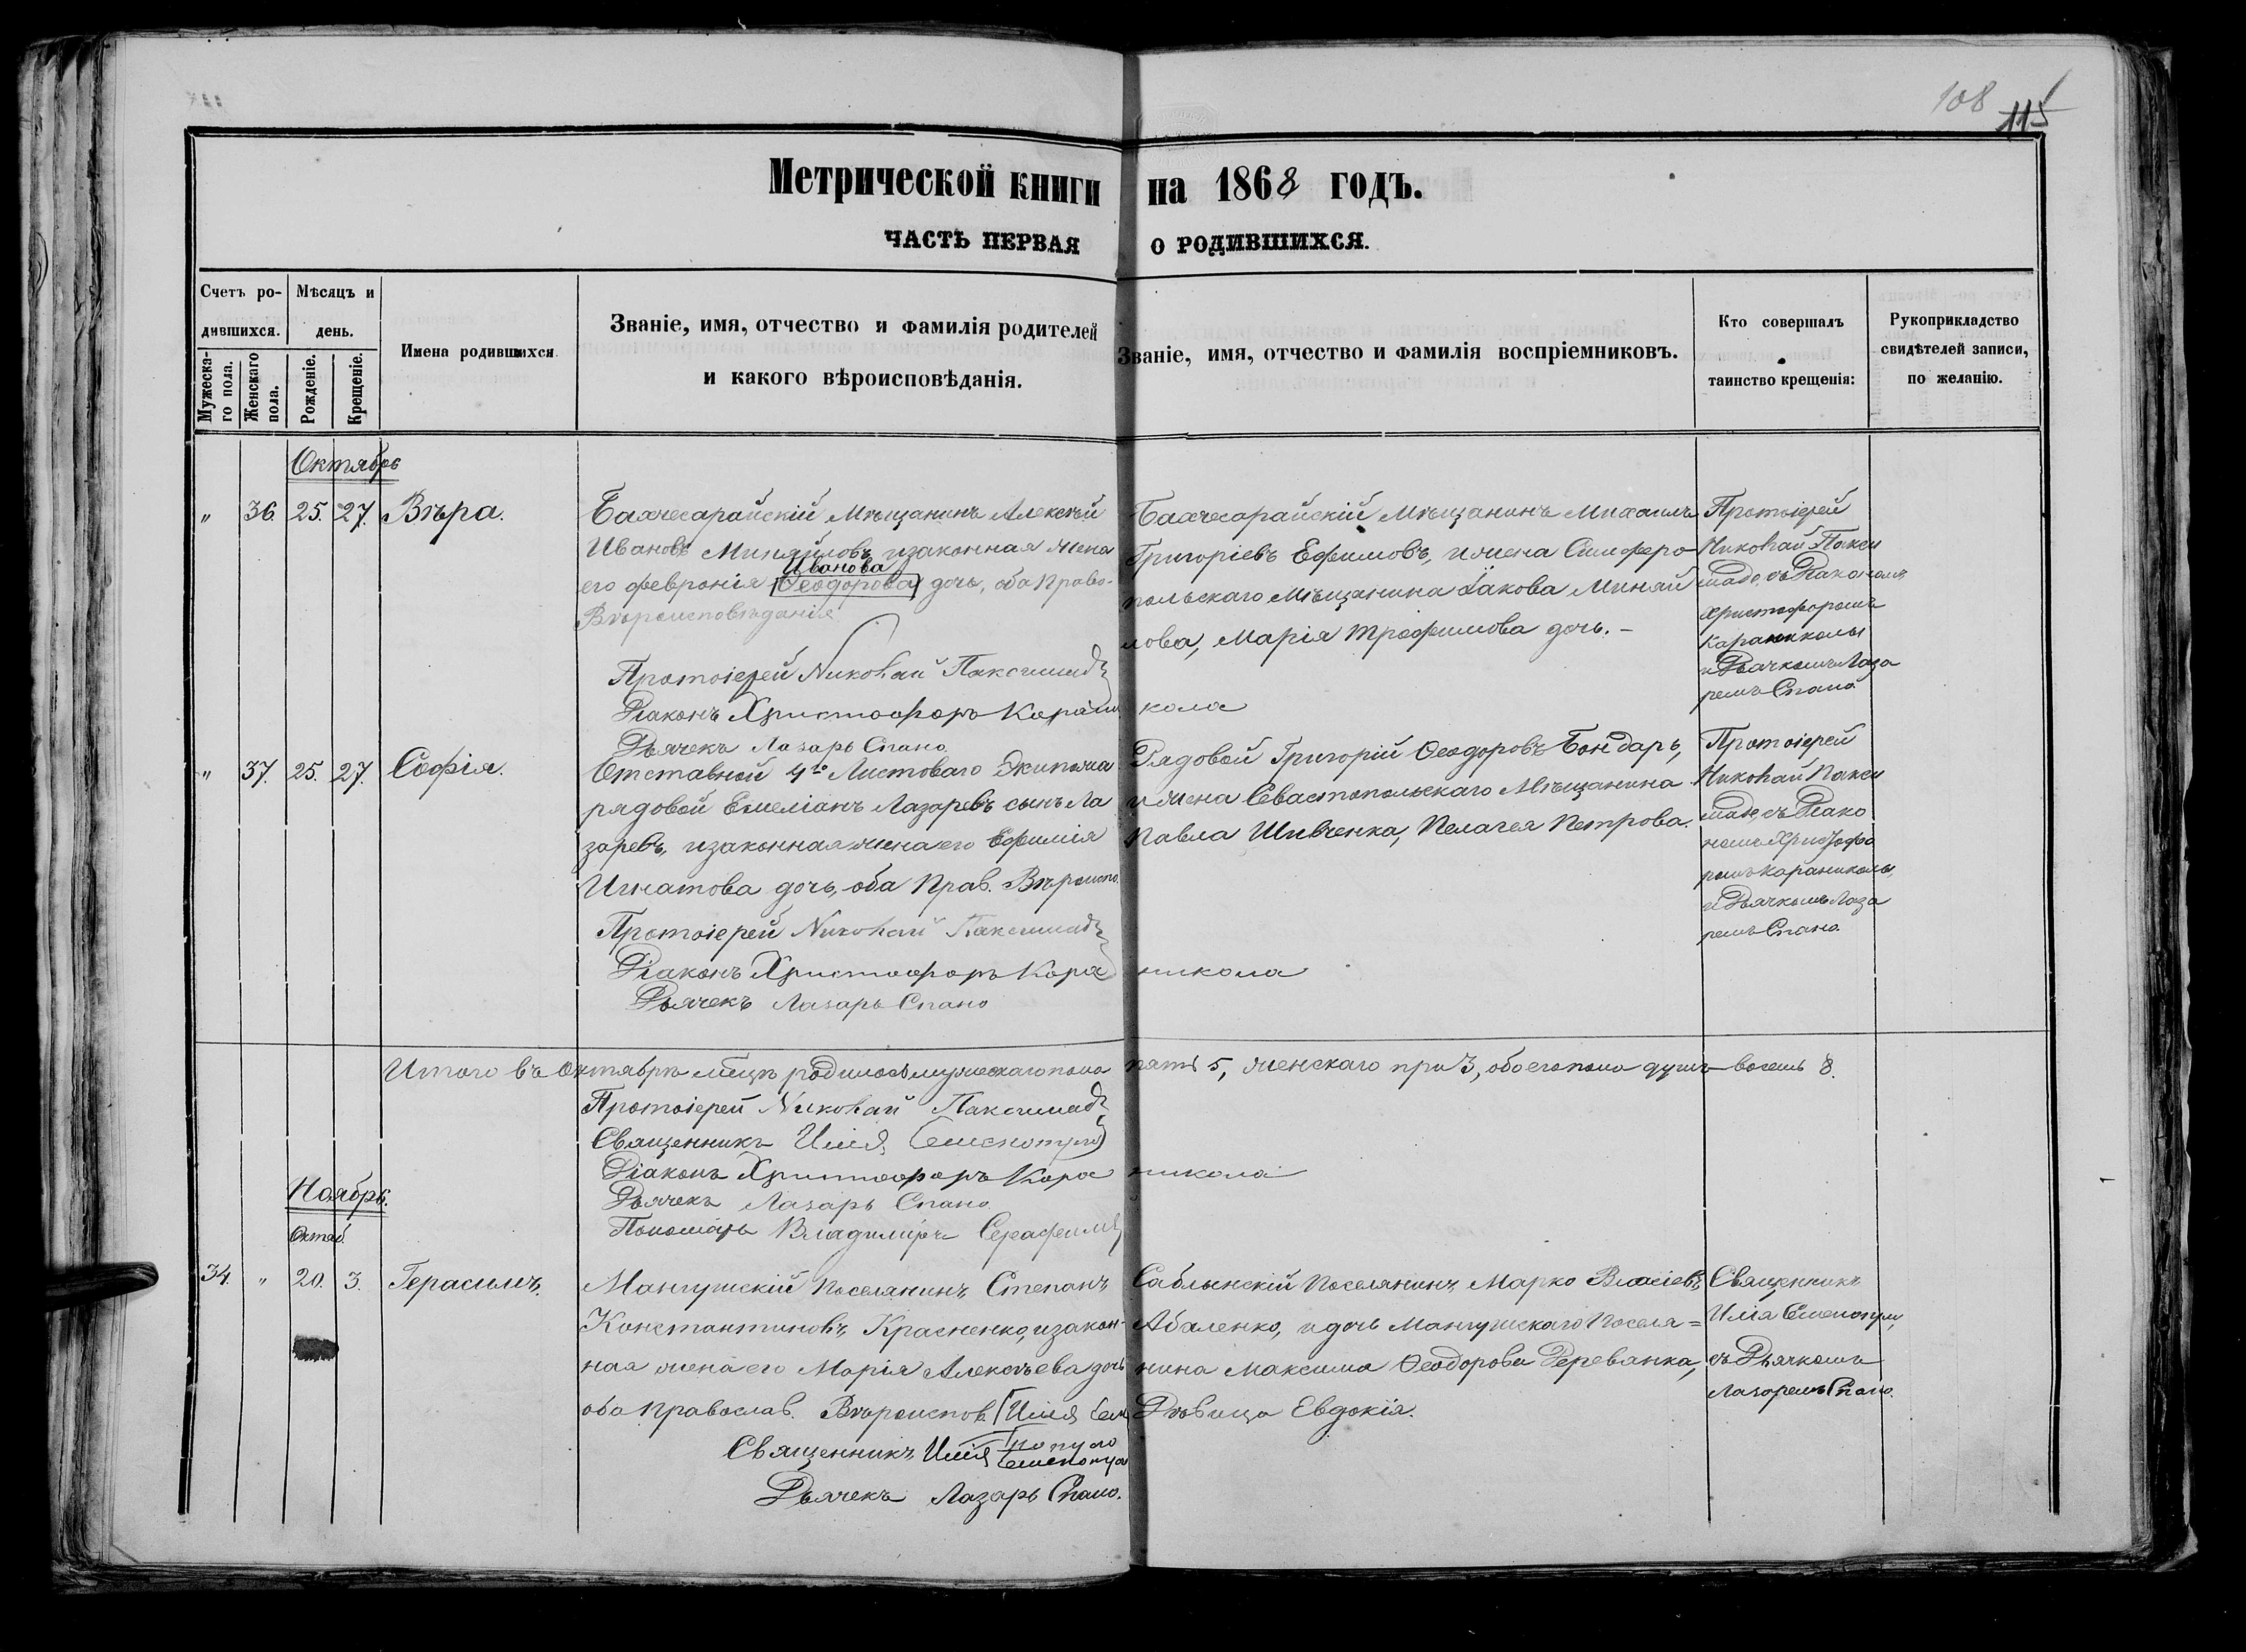 108
115
Метрической книги на 1868 годъ.
ЧАСТЬ ПЕРВАЯ О РОДИВШИХСЯ.
Счетъ ро-
дившихся.
Мужеска-
го пола.
Женскаго
пола.
Мѣсяцъ и
день.
Рожденіе.
Крещеніе.
Имена родившихся.
Званіе, имя, отчество и фамилія родителей
и какого вѣроисповѣданія.
Званіе, имя, отчество и фамилія воспріемниковъ.
Кто совершалъ
таинство крещенія:
Рукоприкладство
свидѣтелей записи,
по желанію.
Октябрь
" 36. 25. 27. Вѣра.
Бахчесарайскій Мѣщанинъ Алексѣй
Ивановъ Миняйловъ, изаконная жена
Иванова
его Февронія Ѳеодорова дочь, оба Право-
Вѣроисповѣданія
Протоіерей Николай Паксимадъ
Діаконъ Христофоръ Карани кола
Дьячекъ Лазарь Спано
Бахчесарайскій Мѣщанинъ Михаилъ
Григоріевъ Ефимовъ, ижена Симферо-
польскаго Мѣщанина Іакова Миняй
лова, Марія Трофимова дочь. -
Протоіерей
Николай Пакси
мадъ, съ Діакономъ
Христофоромъ
Караникола
и Дьячкомъ Лаза
ремъ Спано
" 37. 25. 27. Софія.
Отставной 4го Ластоваго Экипажа
рядовой Емеліанъ Лазаревъ сынъ Ла
заревъ, изаконная жена его Ефимія
Игнатова дочь, оба Прав. Вѣроиспо.
Протоіерей Николай Паксимадъ
Діаконъ Христофоръ Кара никола
Дьячекъ Лазарь Спано
Рядовой Григорій Ѳеодоровъ Бондарь,
ижена Севастопольскаго Мѣщанина
Павла Шивченка, Пелагея Петрова.
Протоіерей
Николай Пакси
мадъ, съ Діако
номъ Христофо
ромъ Караникола,
и Дьячкомъ Лаза
ремъ Спано.
Итого въ Октябрѣ мѣсцѣ родилось мужескаго пола пять 5, женскаго три 3, обоего пола душъ восемь 8.
Протоіерей Николай Паксимадъ
Священникъ Илія
Діаконъ Христофоръ Кара никола
Дьячекъ Лазарь Спано.
Пономарь Владимиръ Серафимъ
Ноябрь.
Октяб.
34. " 20. 3. Герасимъ.
Мангушскій Поселянинъ Степанъ
Константиновъ Красненко, изакон-
ная жена его Марія Алексѣева дочь
оба Православ. Вѣроиспов. Илія
Священникъ Илія
Дьячекъ Лазарь Спано.
Саблынскій Поселянинъ Марко Власіевъ
Абаленко, идочь Мангушскаго Поселя=
нина Максима Ѳеодорова Деревянка,
Дѣвица Евдокія.
Священникъ
Илія
съ Дьячкомъ
Лазаремъ Спано.